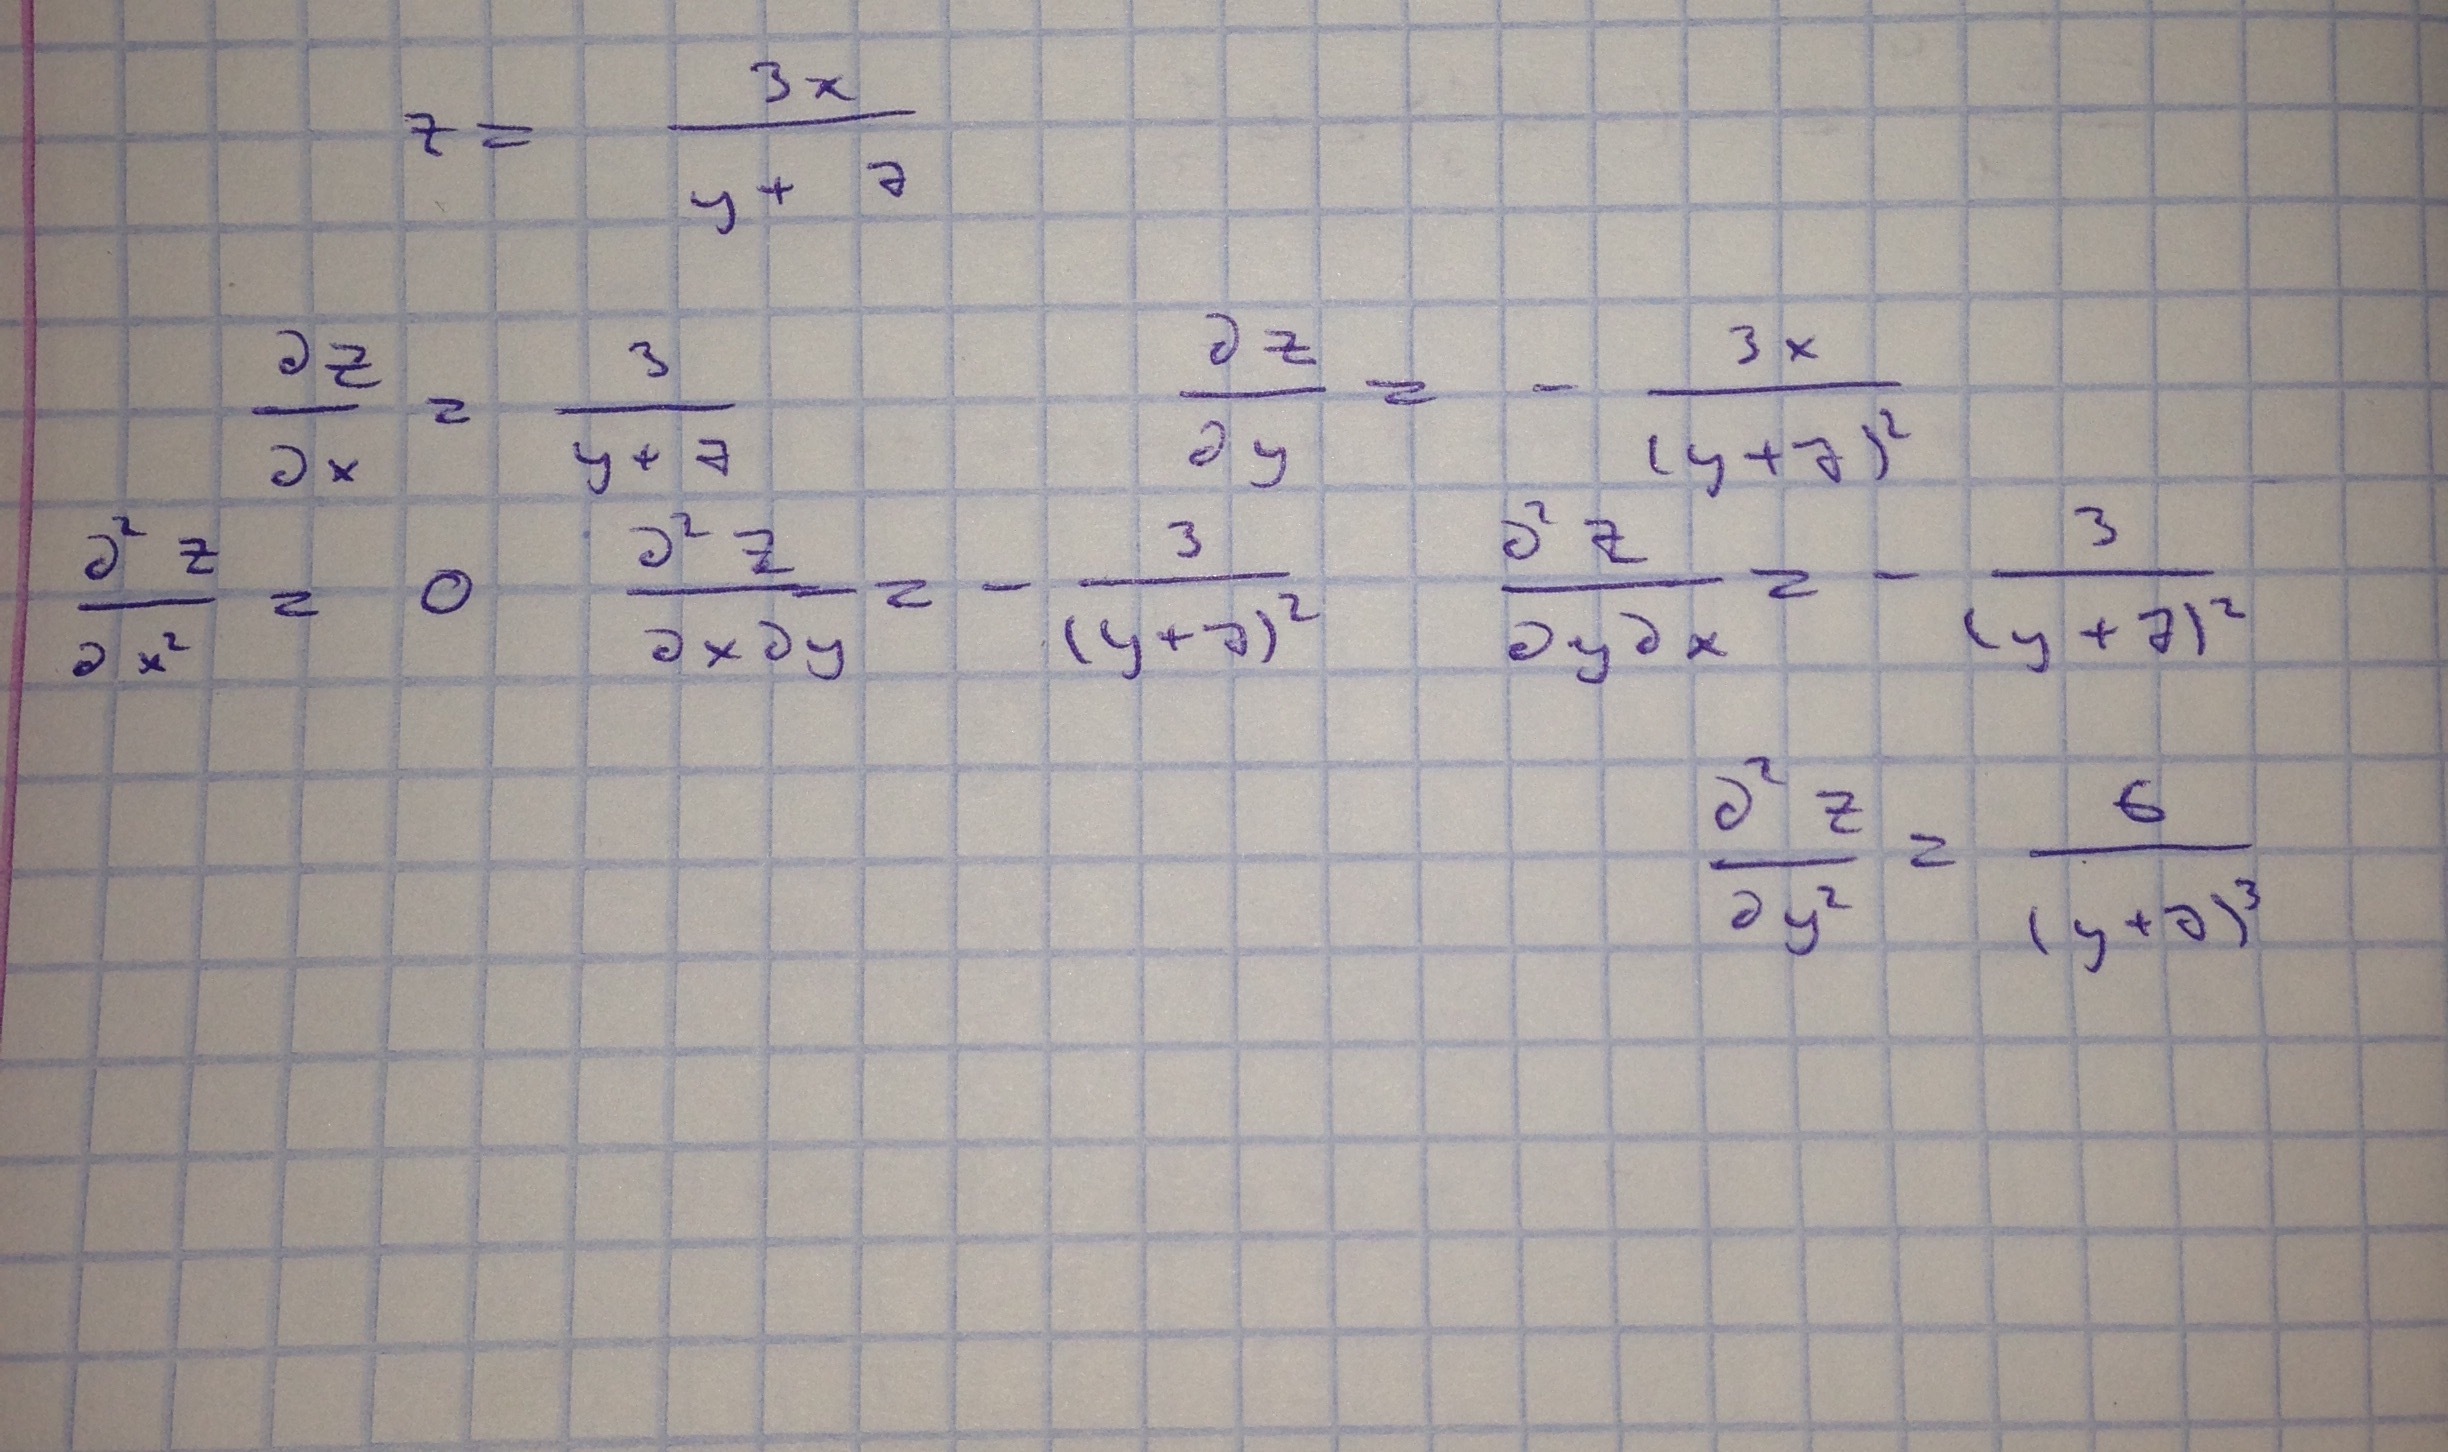 z = 3x / (y + 7)
∂z/∂x = 3/(y+7) ∂z/∂y = - 3x/(y+7)²
∂²z/∂x² = 0 ∂²z/∂x∂y = - 3/(y+7)² ∂²z/∂y∂x = - 3/(y+7)²
∂²z/∂y² = 6/(y+7)³